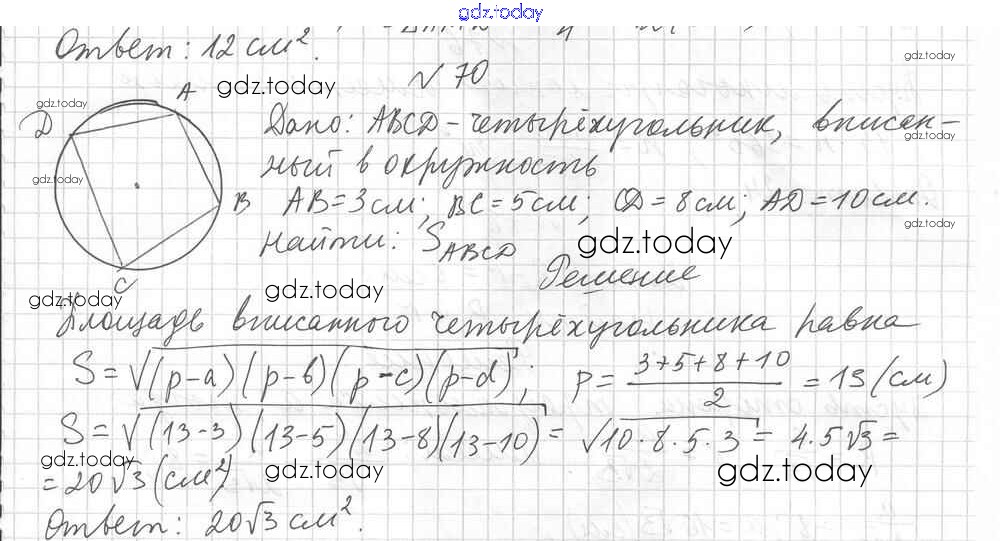 gdz.today
Ответ: 12 см².
№ 70
gdz.today
gdz.today
gdz.today
A
D
B
C
Дано: ABCD – четырёхугольник, вписан-
ный в окружность
gdz.today
AB = 3 см; BC = 5 см; CD = 8 см; AD = 10 см.
gdz.today
Найти: S_ABCD
gdz.today
Решение
gdz.today
gdz.today
Площадь вписанного четырёхугольника равна
S = √(p-a)(p-b)(p-c)(p-d); p = (3+5+8+10)/2 = 13 (см)
gdz.today
S = √(13-3)(13-5)(13-8)(13-10) = √10·8·5·3 = 4·5√3 =
gdz.today
gdz.today
gdz.today
= 20√3 (см²)
Ответ: 20√3 см².